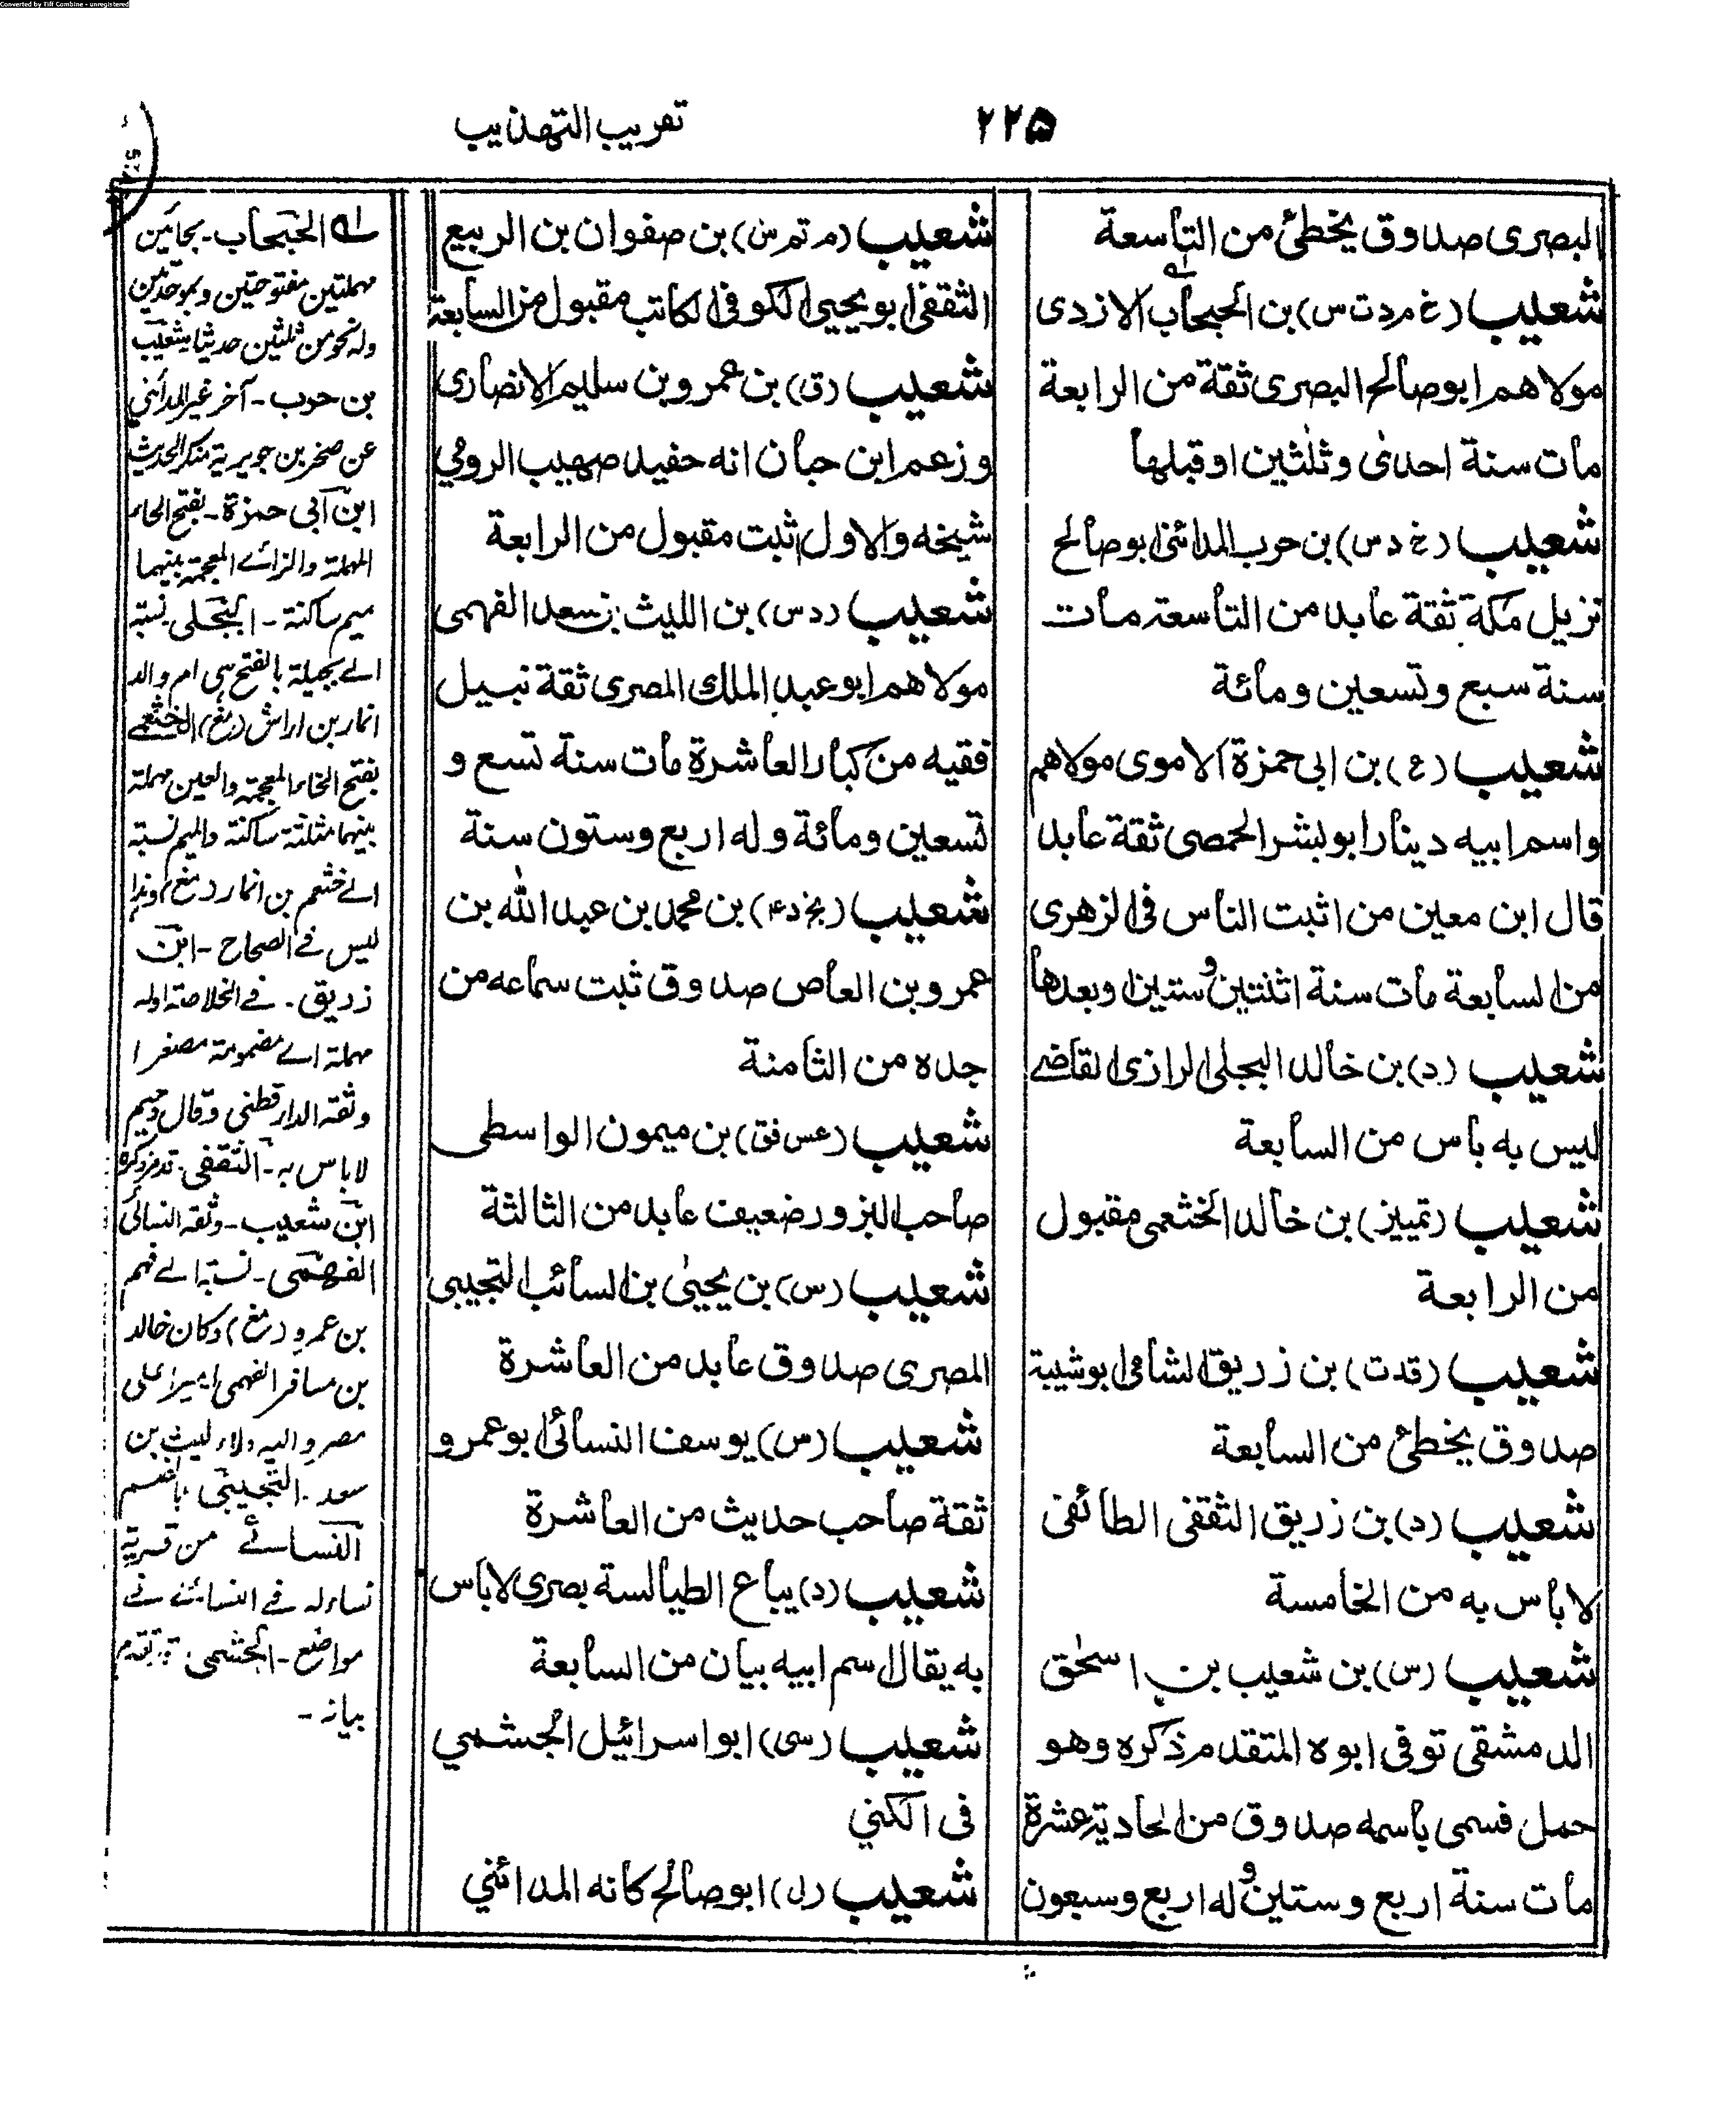 Converted by Tiff Combine - unregistered
۲۲۵
تقريب التهذيب
البصرى صدوق يخطئ من التاسعة
شعيب (خ م د ت س) بن الحبحاب الازدى
مولاهم ابو صالح البصرى ثقة من الرابعة
مات سنة احدى وثلثين او قبلها
شعيب (خ د س) بن حرب المدائنى ابو صالح
نزيل مكة ثقة عابد من التاسعة مات
سنة سبع وتسعين ومائة
شعيب (ع) بن ابى حمزة الاموى مولاهم
واسم ابيه دينار ابو بشر الحمصى ثقة عابد
قال ابن معين من اثبت الناس فى الزهرى
من السابعة مات سنة اثنتين وستين او بعدها
شعيب (د) بن خالد البجلى الرازى القاضے
ليس به باس من السابعة
شعيب (تمييز) بن خالد الخثعمى مقبول
من الرابعة
شعيب (قدت) بن زريق الشامى ابو شيبة
صدوق يخطئ من السابعة
شعيب (د) بن زريق الثقفى الطائفى
لا باس به من الخامسة
شعيب (س) بن شعيب بن اسحٰق
الدمشقى توفى ابوه المتقدم ذكره وهو
حمل فسمى باسمه صدوق من الحادية عشرة
مات سنة اربع وستين وله اربع وسبعون
شعيب (م تم س) بن صفوان بن الربيع
الثقفى ابو يحيى الكوفى الكاتب مقبول من السابعة
شعيب (ق) بن عمرو بن سليم الانصارى
وزعم ابن حبان انه حفيد صهيب الرومي
شيخه والاول اثبت مقبول من الرابعة
شعيب (د س) بن الليث بن سعد الفهمى
مولاهم ابو عبد الملك المصرى ثقة نبيل
فقيه من كبار العاشرة مات سنة تسع و
تسعين ومائة وله اربع وستون سنة
شعيب (بخ د۴) بن محمد بن عبد الله بن
عمرو بن العاص صدوق ثبت سماعه من
جده من الثامنة
شعيب (عس فق) بن ميمون الواسطى
صاحب البزور ضعيف عابد من الثالثة
شعيب (س) بن يحيىٰ بن السائب التجيبى
المصرى صدوق عابد من العاشرة
شعيب (س) يوسف النسائى ابو عمرو
ثقة صاحب حديث من العاشرة
شعيب (د) يباع الطيالسة بصرى لا باس
به يقال اسم ابيه بيان من السابعة
شعيب (سى) ابو اسرائيل الجشمي
فى الكني
شعيب (ل) ابو صالح كانه المدائني
له الحبحاب - بحائين
مهملتين مفتوحتين وبموحدتين
وله نحو من ثلثين حديثا شعيب
بن حرب - آخر غير المدائني
عن صخر بن جويرية منكر الحديث
ابن ابى حمزة - بفتح الحاء
المهملة والزاے المعجمة بينهما
ميم ساكنة - البجلى نسبة
الے بجيلة بالفتح هى ام والد
انمار بن اراش (مغ) الخثعمے
بفتح الخاء المعجمة والعين مهملة
بينهما مثلثة ساكنة والميم نسبة
الے خثعم بن انمار (مغ) وهذا
ليس فے الصحاح - ابن
زريق - فے الخلاصة اوله
مهملة اے مضمومة مصغرا
وثقه الدارقطنى وقال دحيم
لا باس به - الثقفى - تقدم ذكره
ابن شعيب - وثقه النسائى
الفهمى - نسبة الے فهم
بن عمرو (مغ) وكان خالد
بن مسافر الفهمى اميرا على
مصر واليه ولاء ليث بن
سعد - التجيبى بالضم
النسائے من قرية
نساء وله فے النسائے فے
مواضع - الجشمى - تقدم
بيانه -